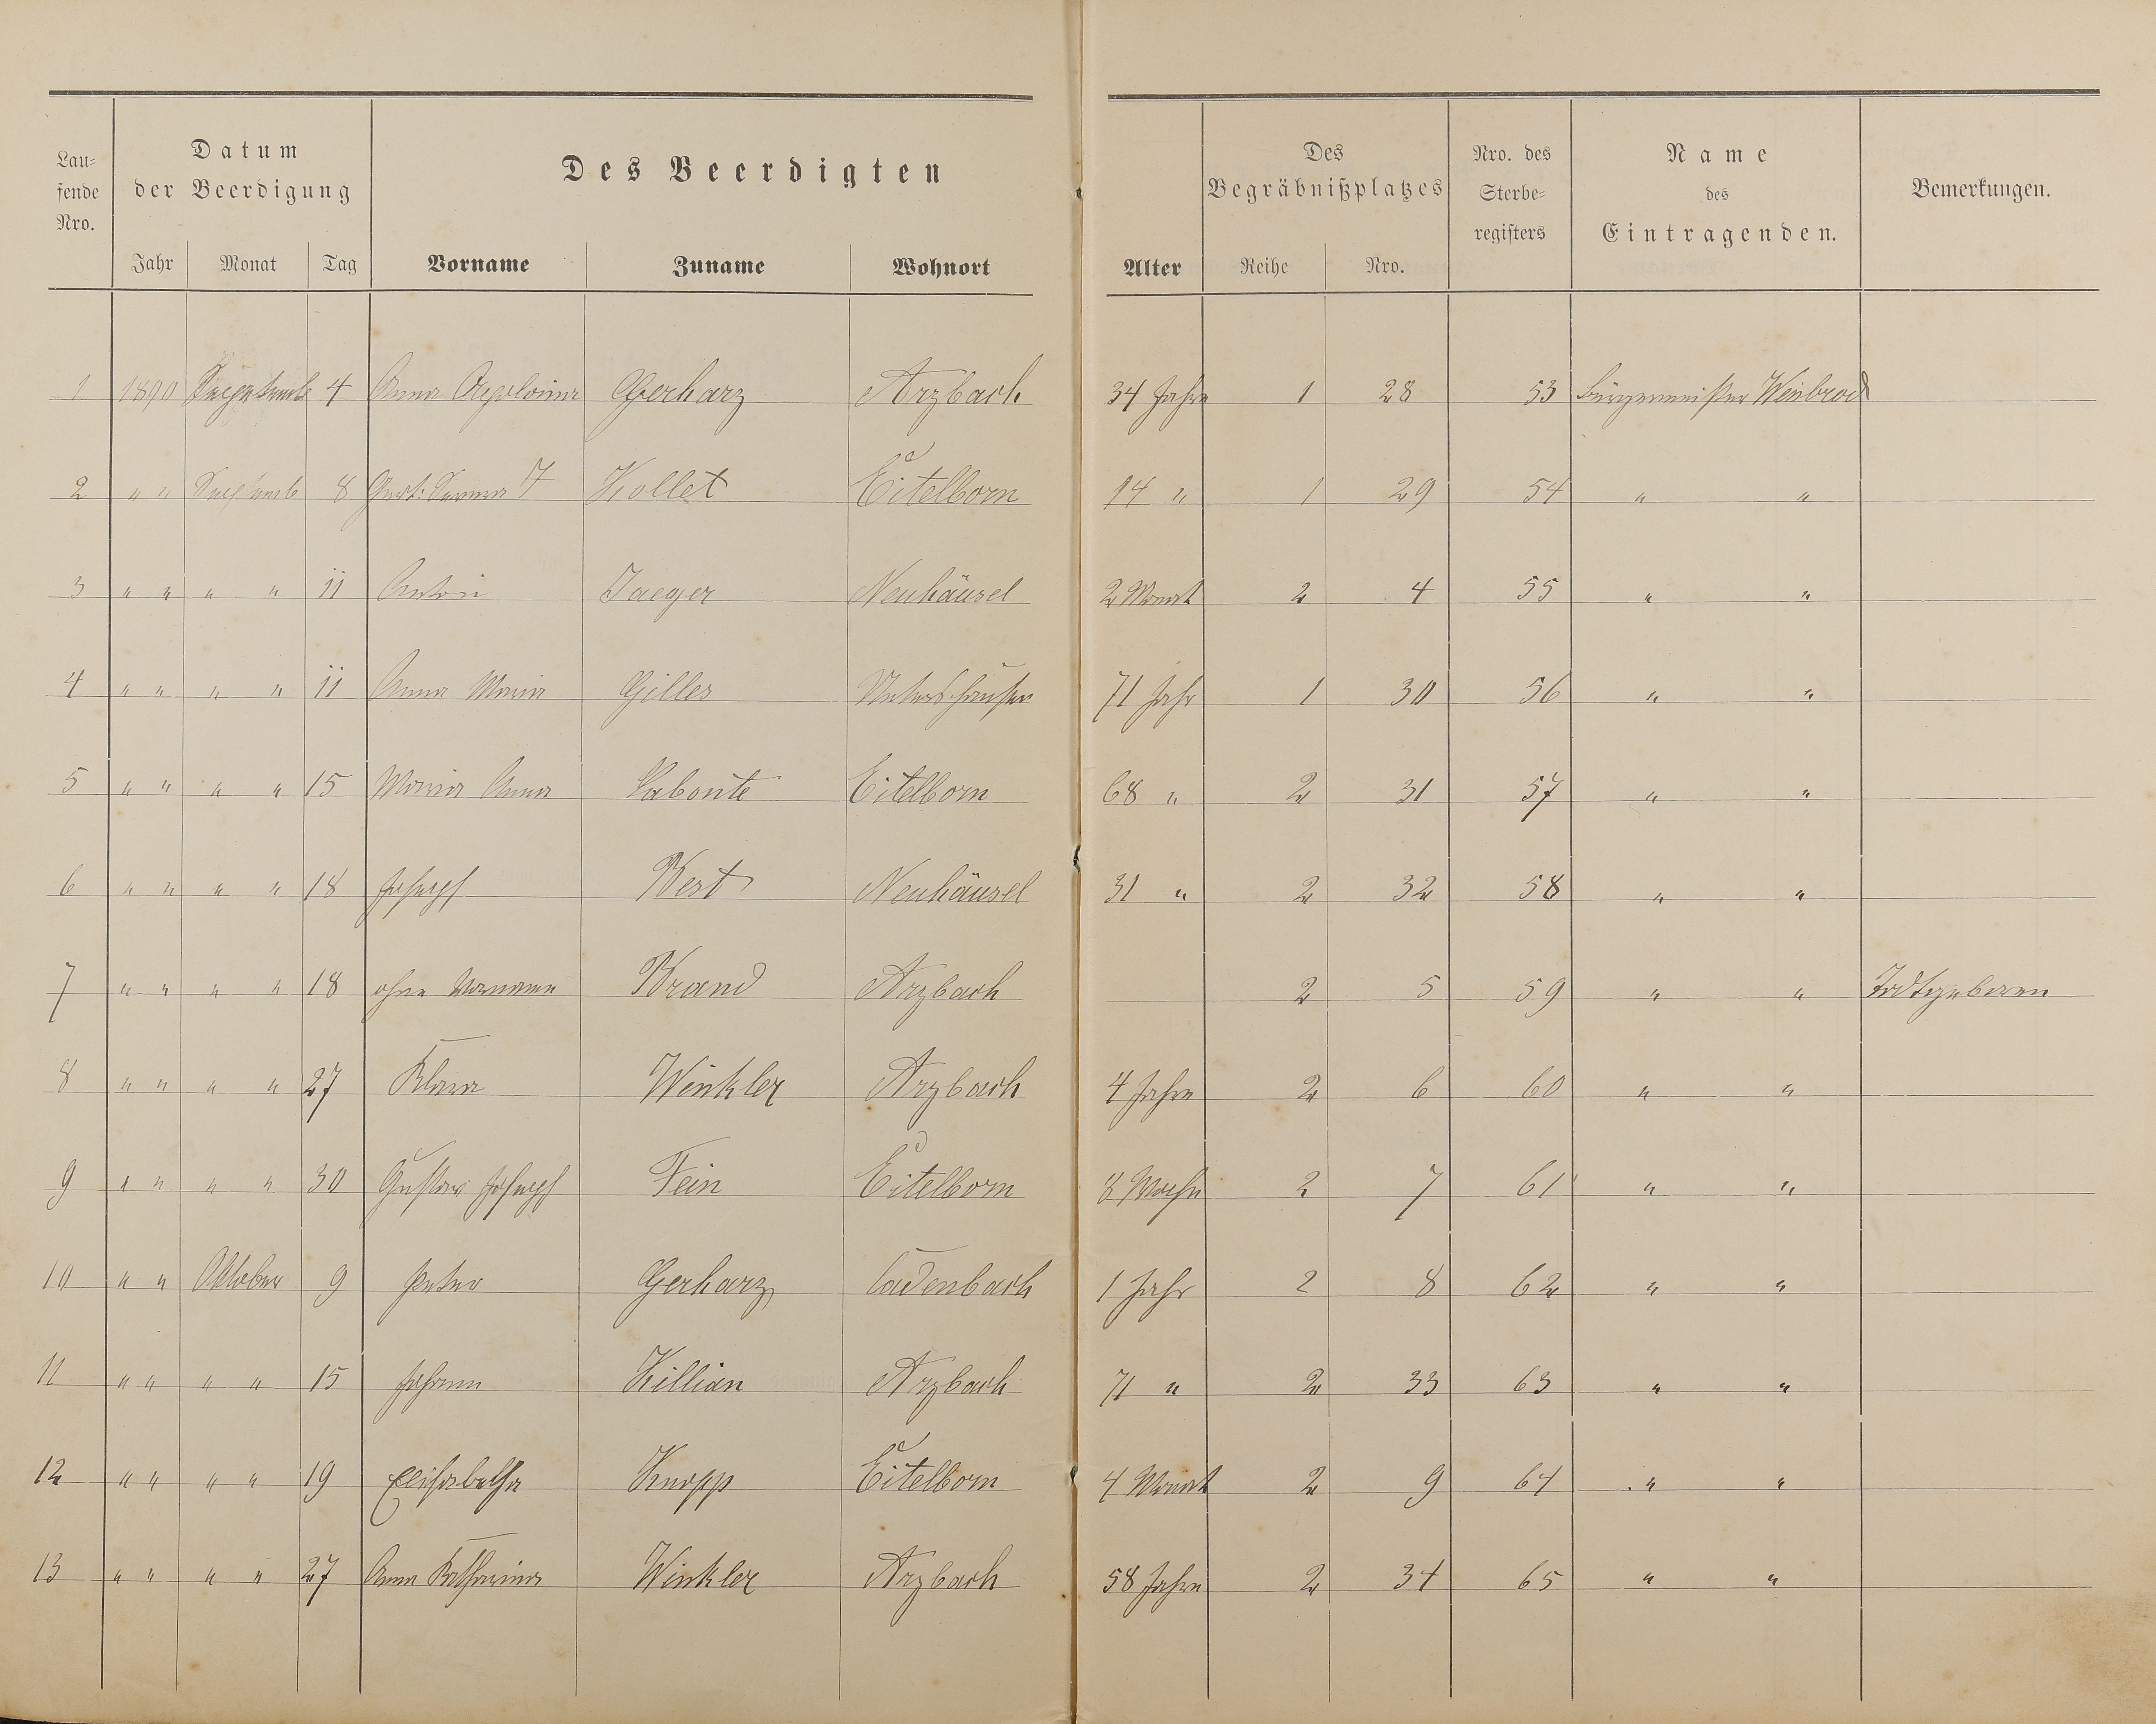 Lau=
fende
Nro.
Datum
der Beerdigung
Jahr Monat Tag
Des Beerdigten
Vorname Zuname Wohnort
Alter
Des
Begräbnißplatzes
Reihe Nro.
Nro. des
Sterbe=
registers
Name
des
Eintragenden.
Bemerkungen.
1 1890 4 Anna Gerharz Arzbach 34 Jahre 1 28 53 Bürgermeister Weinbrod
2 " " 8 Kollet Eitelborn 14 " 1 29 54 " "
3 " " " " 11 Anton Jaeger Neuhäusel 2 Monat 2 4 55 " "
4 " " " " 11 Anna Maria Gilles Untershausen 71 Jahr 1 30 56 " "
5 " " " " 15 Maria Anna Labonte Eitelborn 68 " 2 31 57 " "
6 " " " " 18 Joseph Best Neuhäusel 31 " 2 32 58 " "
7 " " " " 18 ohne Vorname Brand Arzbach 2 5 59 " " Todtgeboren
8 " " " " 27 Klara Winkler Arzbach 4 Jahre 2 6 60 " "
9 " " " " 30 Gustav Joseph Fein Eitelborn 3 2 7 61 " "
10 " " Oktober 9 Peter Gerharz Cadenbach 1 Jahr 2 8 62 " "
11 " " " " 15 Johann Killian Arzbach 71 " 2 33 63 " "
12 " " " " 19 Elisabetha Knopp Eitelborn 4 Monat 2 9 64 " "
13 " " " " 27 Anna Katharina Winkler Arzbach 58 Jahre 2 34 65 " "